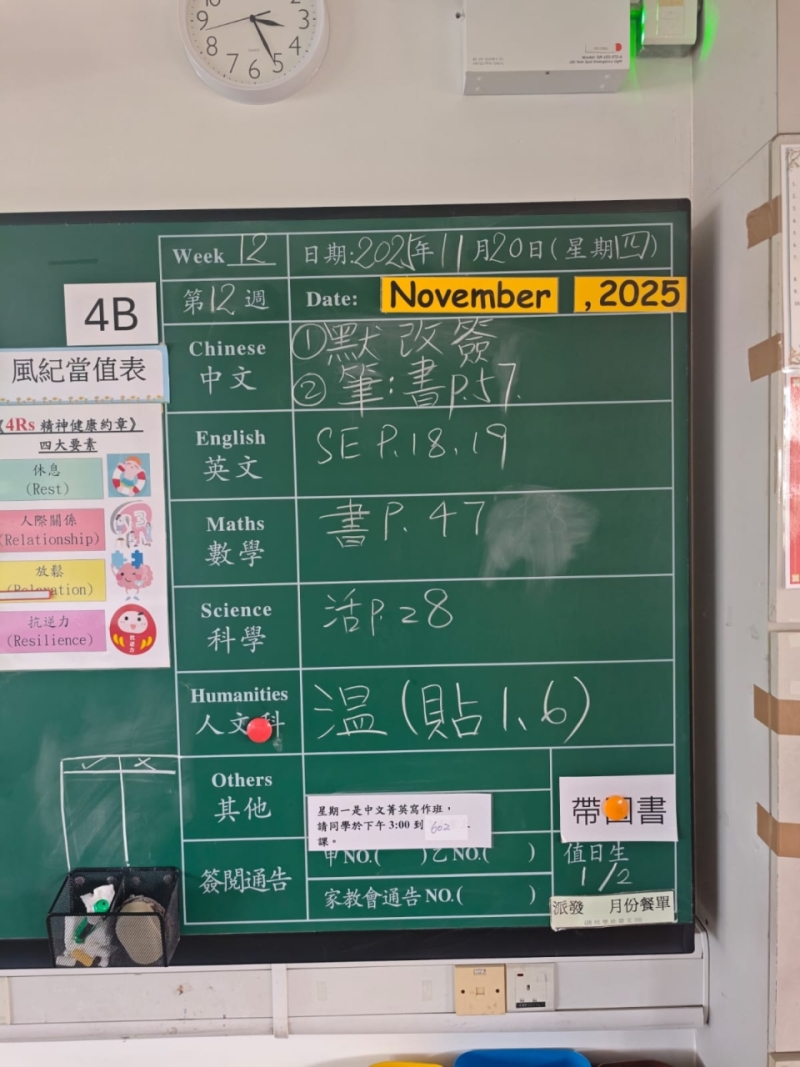 10
2
9
3
8
4
7
6
5
QUARTZ
Week 12
日期:2025年11月20日(星期四)
第12週
Date: November , 2025
4B
Chinese
中文
①默改簽
②筆:書P.57.
風紀當值表
《4Rs 精神健康約章》
四大要素
休息
(Rest)
人際關係
(Relationship)
放鬆
抗逆力
(Resilience)
English
英文
SE P.18.19
Maths
數學
書P.47
Science
科學
活P.28
Humanities
人文科
溫(貼1、6)
✓ ✗
Others
其他
星期一是中文菁英寫作班，
請同學於下午 3:00 到 602
課。
帶圖書
簽閱通告
甲NO.( )乙NO.( )
家教會通告 NO.( )
值日生
1/2
派發 月份餐單